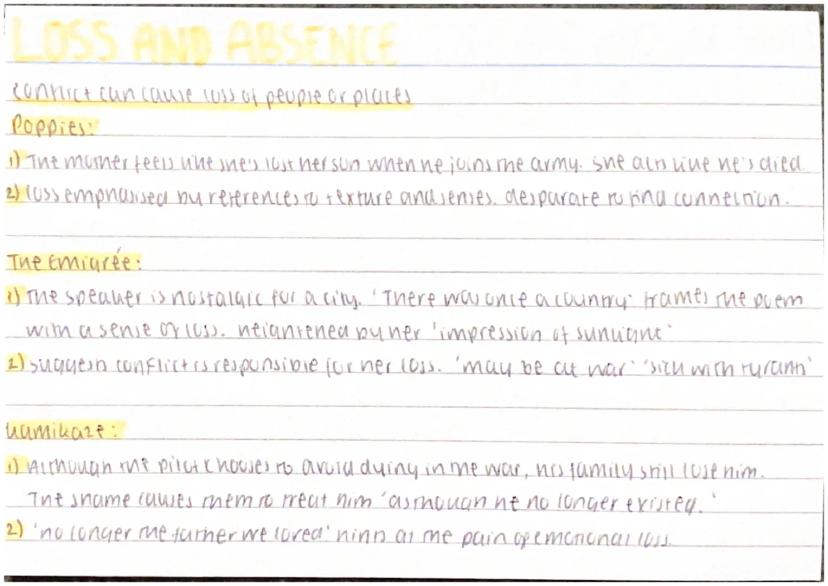 LOSS AND ABSENCE
Conflict can cause loss of people or places
Poppies:
1) The mother feels like she's lost her son when he joins the army. She acts like he's died.
2) loss emphasised by references to texture and senses. desparate to find connection.
The Emigrée:
1) The speaker is nostalgic for a city. 'There was once a country' frames the poem
with a sense of loss. heightened by her 'impression of sunlight'
2) suggests conflict is responsible for her loss. 'may be at war' 'sick with tyrants'
Kamikaze:
1) Although the pilot chooses to avoid dying in the war, his family still lose him.
The shame causes them to treat him 'as though he no longer existed.'
2) 'no longer the father we loved' hints at the pain of emotional loss.